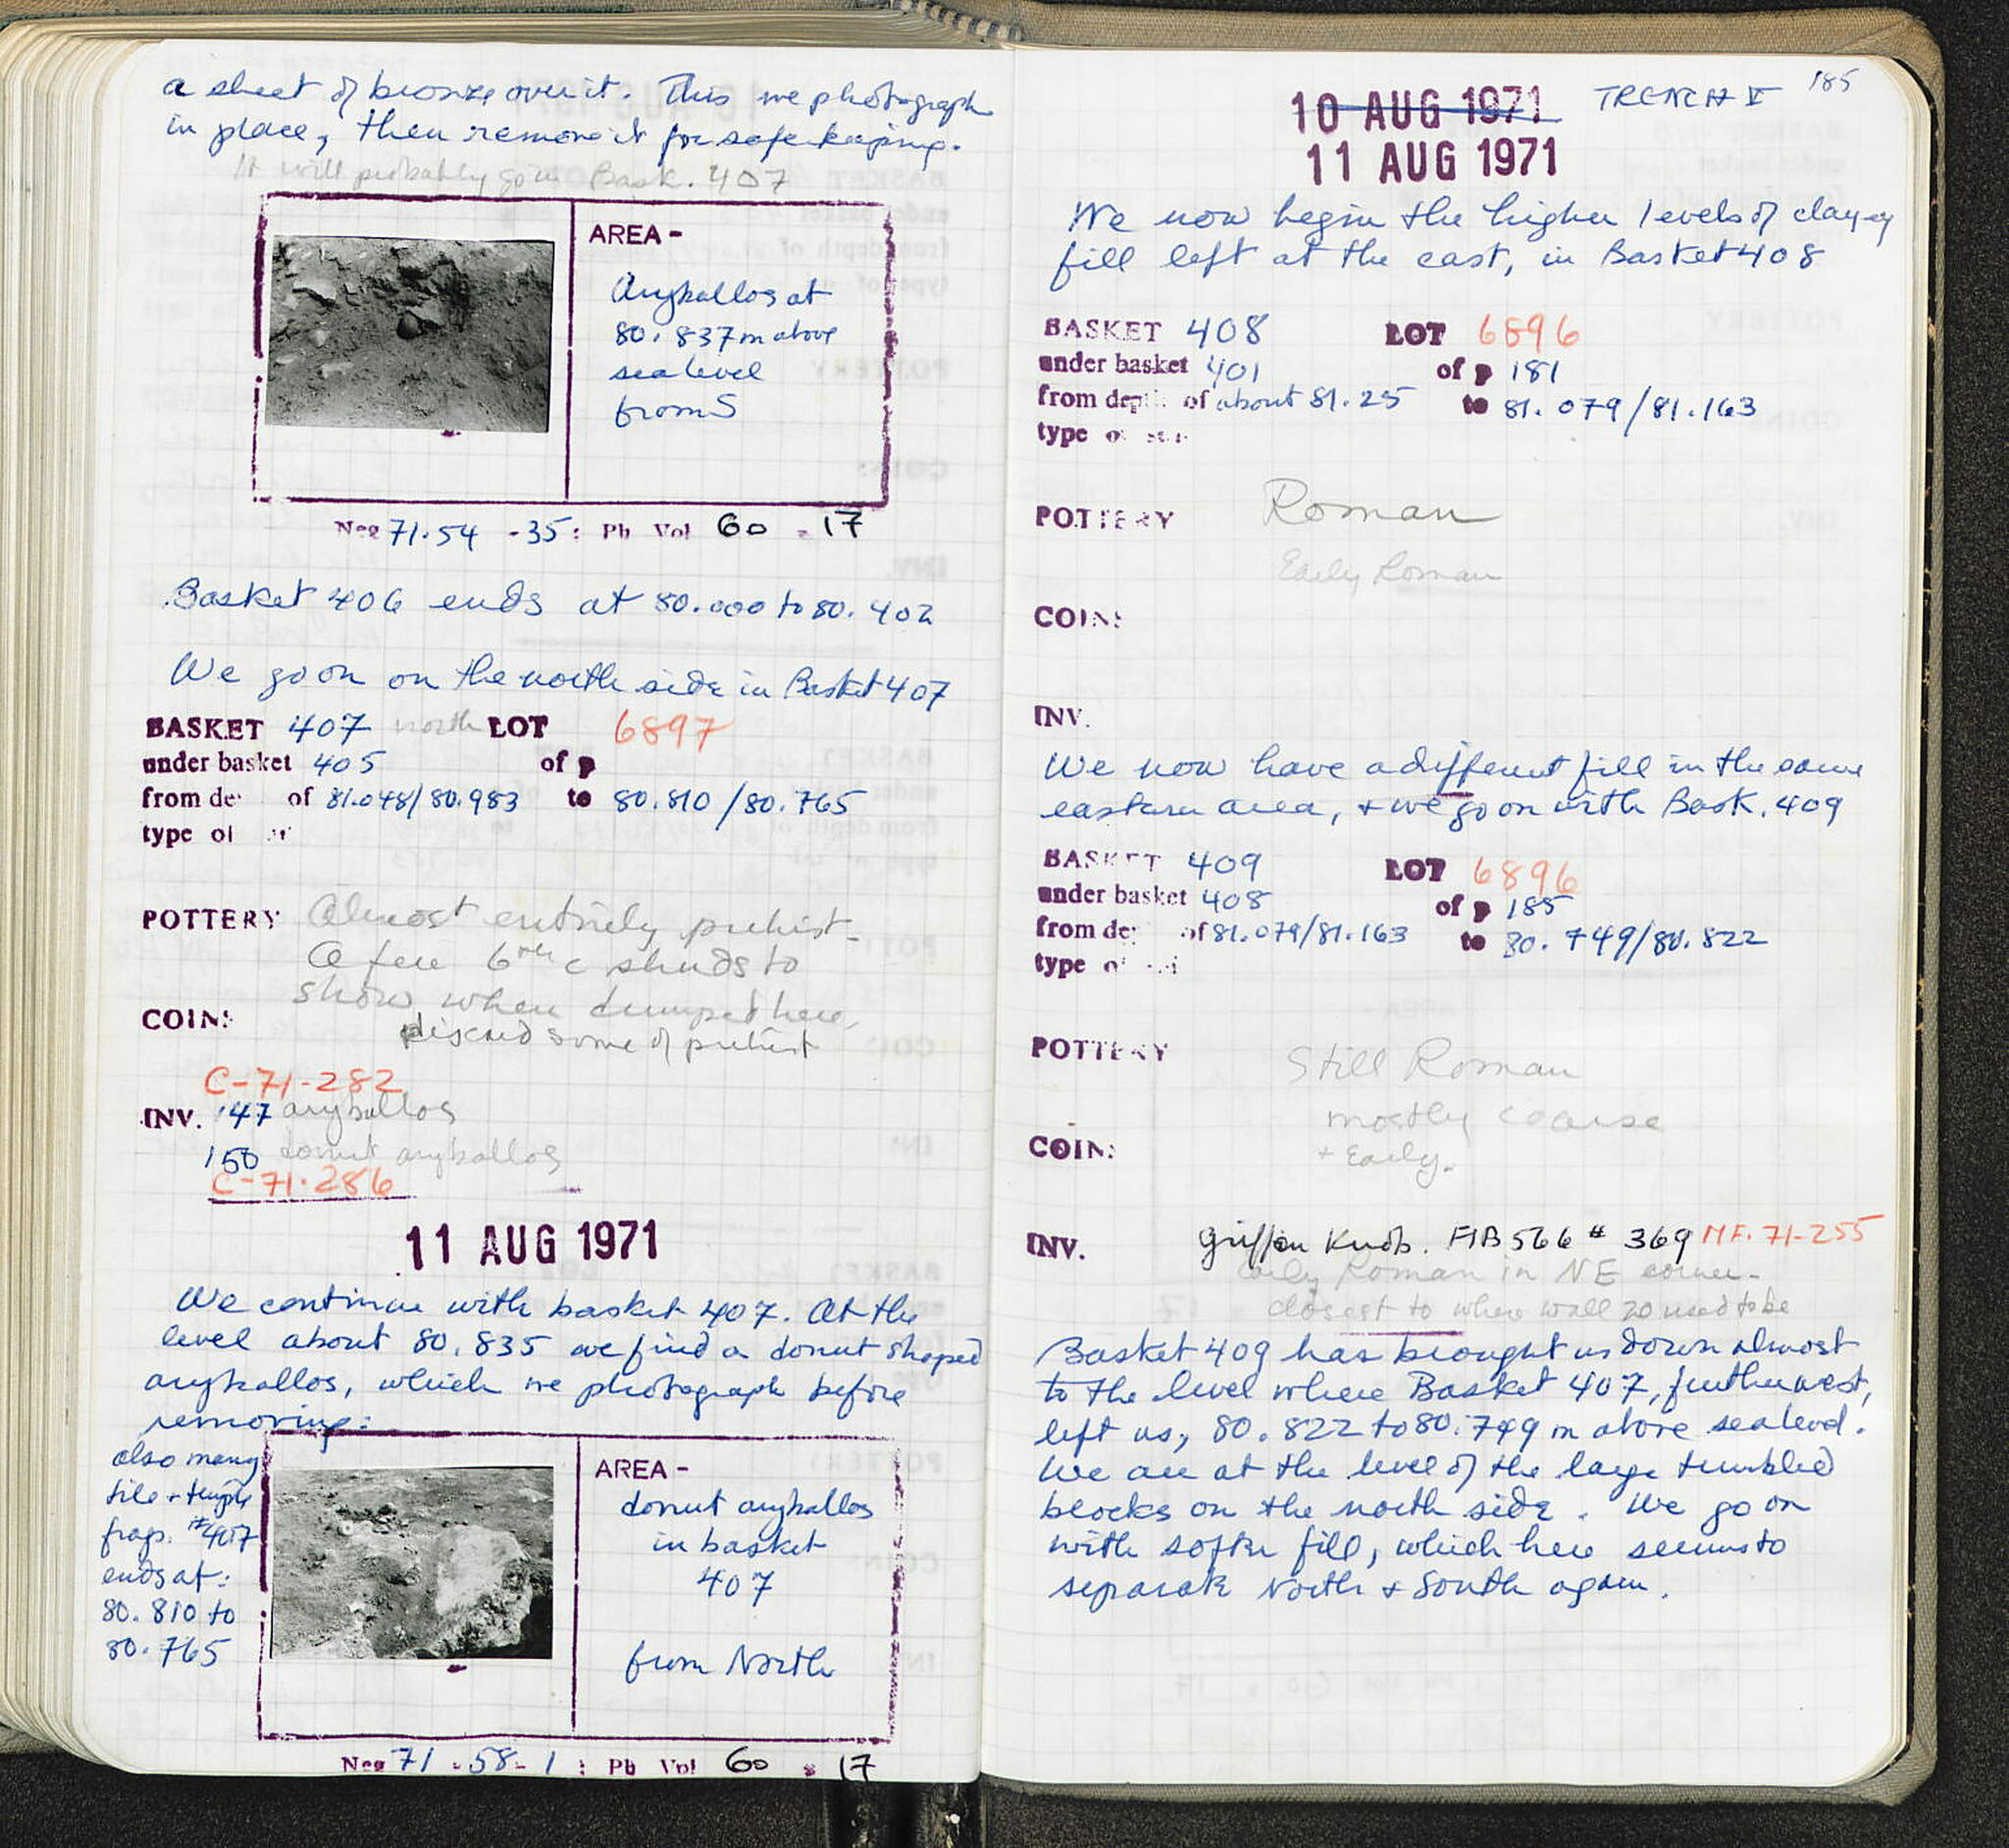 a sheet of bronze over it. This we photograph
in place, then remove it for safe keeping.
It will probably go in Bask. 407
AREA -
Aryballos at
80.837 m above
sea level
from S
Neg 71.54 - 35 : Ph Vol 60 - 17
Basket 406 ends at 80.000 to 80.402
We go on on the north side in Basket 407
BASKET 407 north LOT 6897
under basket 405 of p
from de of 81.048/80.983 to 80.810/80.765
type of
POTTERY Almost entirely prehist.
A few 6th c sherds to
show when dumped here,
COINS
discard some of prehist
C-71-282
INV. 147 aryballos
150 donut aryballos
C-71-286
11 AUG 1971
We continue with basket 407. At the
level about 80.835 we find a donut shaped
aryballos, which we photograph before
removing:
also many
tile + temple
frags. #407
ends at:
80.810 to
80.765
AREA -
donut aryballos
in basket
407
from North
Neg 71 - 58 - 1 : Ph Vol 60 - 17
185
10 AUG 1971 TRENCH V
11 AUG 1971
We now begin the higher levels of clayey
fill left at the east, in Basket 408
BASKET 408 LOT 6896
under basket 401 of p 181
from dept of about 81.25 to 81.079/81.163
type o
POTTERY Roman
Early Roman
COINS
INV.
We now have a different fill in the same
eastern area, + we go on with Bask. 409
BASKET 409 LOT 6896
under basket 408 of p 185
from de of 81.079/81.163 to 80.749/80.822
type o
POTTERY Still Roman
mostly coarse
COINS + Early.
INV. Griffin Knob. FIB 566 # 369 MF. 71-255
Early Roman in NE corner.
closest to where wall 20 used to be
Basket 409 has brought us down almost
to the level where Basket 407, further west,
left us, 80.822 to 80.749 m above sea level.
We are at the level of the large tumbled
blocks on the north side. We go on
with softer fill, which here seems to
separate North & South again.